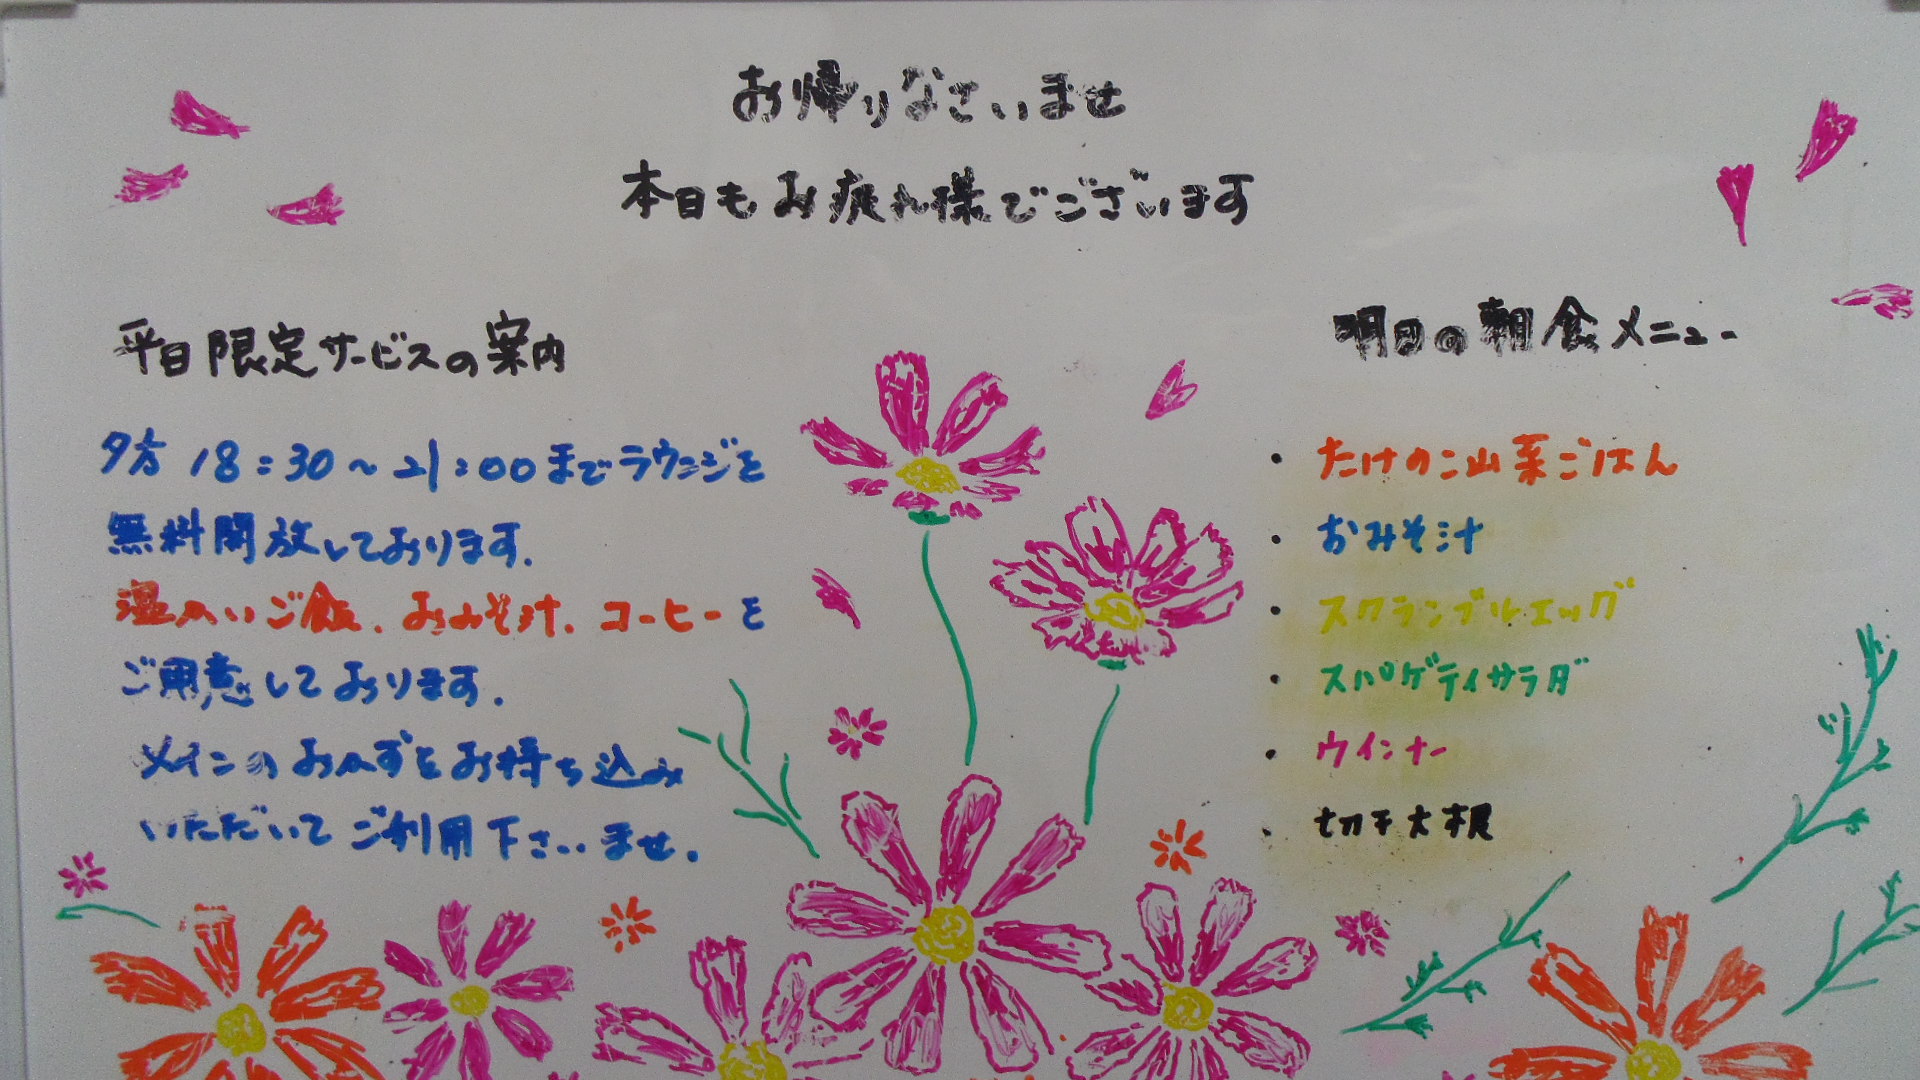 お帰りなさいませ
本日もお疲れ様でございます
平日限定サービスの案内
夕方 18:30～21:00までラウンジを
無料開放しております.
温かいご飯、おみそ汁、コーヒーを
ご用意しております.
メインのおかずをお持ち込み
いただいてご利用下さいませ.
明日の朝食メニュー
・たけのこ山菜ごはん
・おみそ汁
・スクランブルエッグ
・スパゲティサラダ
・ウインナー
・切干大根